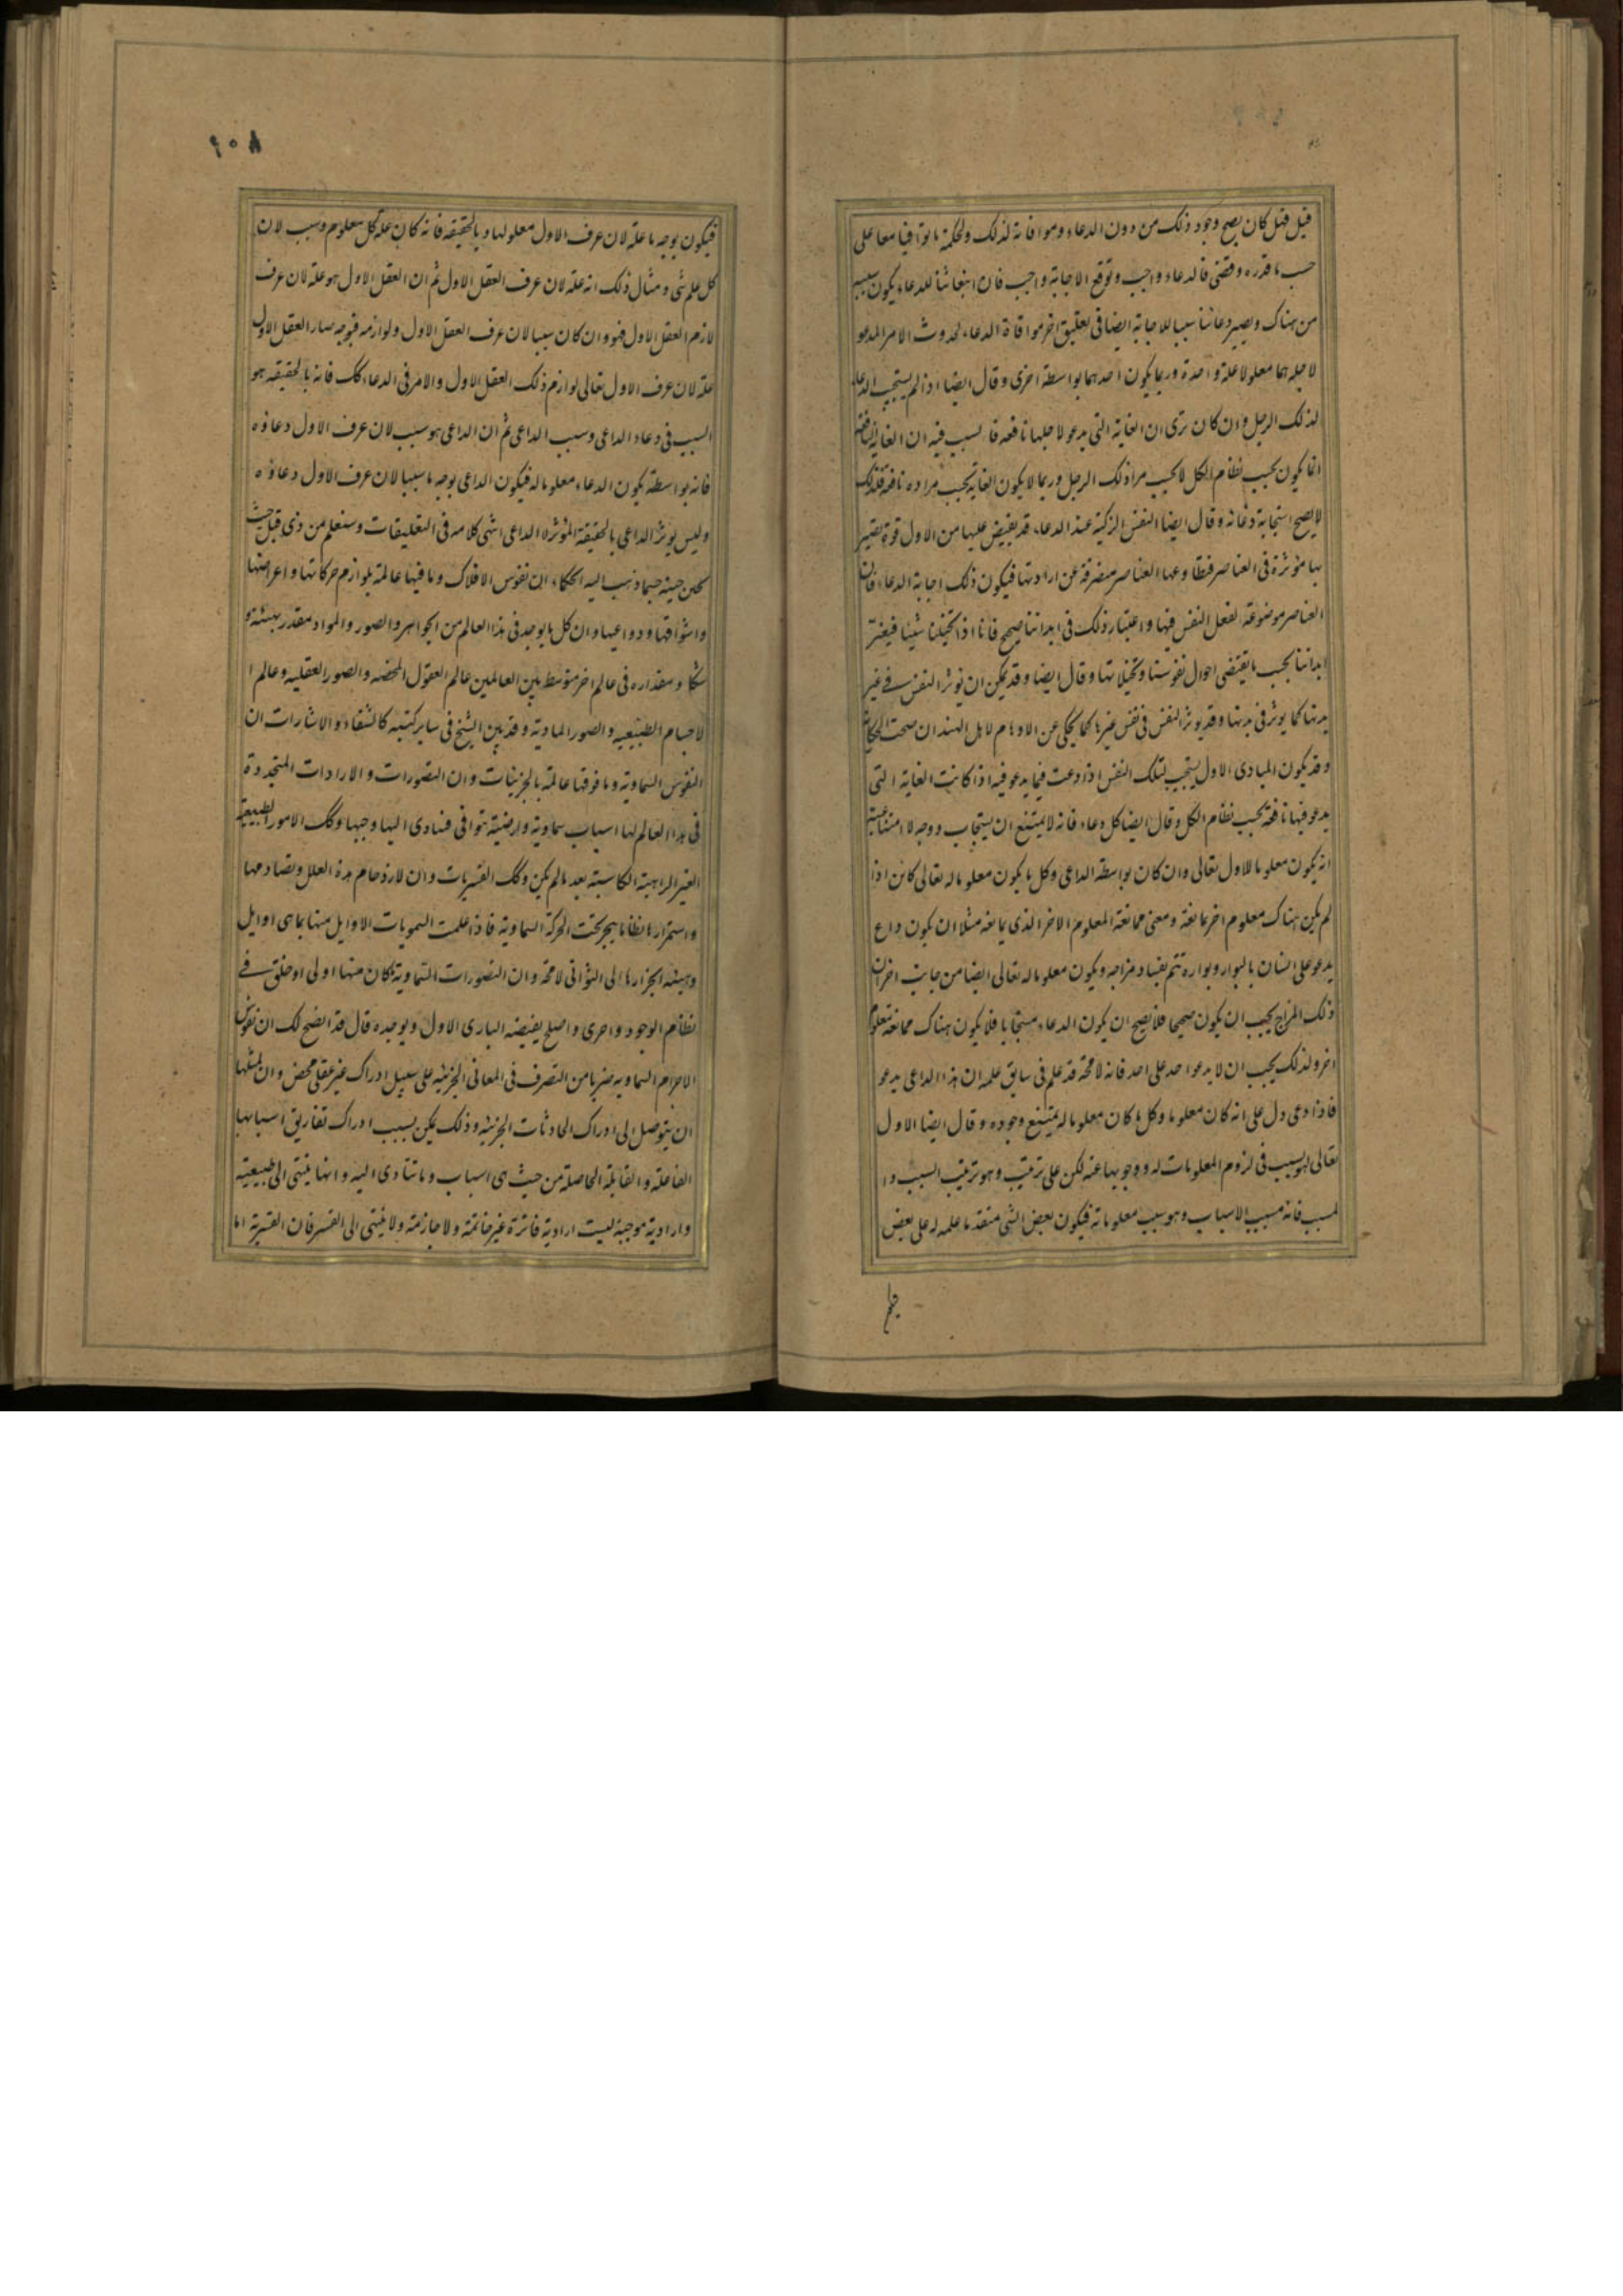 قيل فهل كان يصح وجود ذلك من دون الدعاء وموافاته لذلك ولحكمة ما توافيا معا على
حسب ما قدره وقضى فالدعاء واجب وتوقع الاجابة واجب فان انبعاثنا للدعاء يكون سببه
من هناك ويصير دعائنا سببا للاجابة ايضا فى تعليق اخر موافاة الدعاء لحدوث الامر المدعو
لاجله هما معلولا علة واحدة وربما يكون احدهما بواسطة اخرى وقال ايضا اذا لم يستجب الدعاء
لذلك الرجل وان كان يرى ان الغاية التى يدعو لاجلها نافعة فالسبب فيه ان الغاية النافعة
انما يكون بحسب نظام الكل لا بحسب مراد ذلك الرجل وربما لا يكون الغاية بحسب مراده نافعة فلذلك
لا يصح استجابة دعائه وقال ايضا النفس الزكية عند الدعاء قد يفيض عليها من الاول قوة تصير
بها مؤثرة فى العناصر فتطاوعها العناصر متصرفة عن ارادتها فيكون ذلك اجابة الدعاء فان
العناصر موضوعة لفعل النفس فيها واعتبار ذلك فى ابداننا صحيح فانا اذا تخيلنا شيئا فيغير
ابداننا بحسب ما يقتضى احوال نفوسنا وتخيلاتها وقال ايضا وقد يمكن ان تؤثر النفس فى غير
بدنها كما يوثر فى بدنها وقد يوثر النفس فى نفس غيرها كما يحكى عن الاوهام لاهل الهند ان صحت الحكاية
وقد يكون المبادى الاول يستجيب لتلك النفس اذا دعت فيما يدعو فيه اذا كانت الغاية التى
يدعو فيها نافعة بحسب نظام الكل وقال ايضا كل دعاء فانه لا يمتنع ان يستجاب ووجه لا امتناعيته
انه يكون معلوما للاول تعالى وان كان بواسطة الداعى وكل ما يكون معلوما له تعالى كائن اذا
لم يكن هناك معلوم اخر يمانعه ومعنى ممانعة المعلوم الاخر الذى يمانعه مثلا ان يكون داع
يدعو على انسان بالبوار وبواره تتم بفساد مزاجه ويكون معلوما له تعالى ايضا من جانب اخر ان
ذلك المزاج يجب ان يكون صحيحا فلا يصح ان يكون الدعاء مستجابا فلا يكون هناك ممانعة معلوم
اخر ولذلك يجب ان لا يدعو احد على احد فانه لا محة قد علم فى سابق علمه ان هذا الداعى يدعو
فاذا دعى دل على انه كان معلوما وكل ما كان معلوما له يمتنع وجوده وقال ايضا الاول
تعالى هو سبب فى لزوم المعلومات له ووجوبها عنه لكن على ترتيب وهو ترتيب السبب وا
لمسبب فانه مسبب الاسباب وهو سبب معلوماته فيكون بعض الشى متقدما علمه له على بعض
۶۰۸
فيكون بوجه ما علة لان عرف الاول معلولها وبالحقيقه فانه كان علة كل معلوم وسبب لان
كل علم شى ومثال ذلك انه علة لان عرف العقل الاول ثم ان العقل الاول هو علة لان عرف
لازم العقل الاول فهو وان كان سببا لان عرف العقل الاول ولوازمه فبوجه صار العقل الاول
علة لان عرف الاول تعالى لوازم ذلك العقل الاول والامر فى الدعاء كك فانه بالحقيقه هو
السبب فى دعاء الداعى وسبب الداعى ثم ان الداعى هو سبب لان عرف الاول دعاؤه
فانه بواسطته يكون الدعاء معلوما له فيكون الداعى بوجه ما سببا لان عرف الاول دعاؤه
وليس يوثر الداعى بالحقيقة المؤثر لا الداعى انتهى كلامه فى التعليقات وستعلم من ذى قبل حيث
يحين حينه حيما ذهب اليه الحكماء ان نفوس الافلاك وما فيها عالمة بلوازم حركاتها واعراضها
واشواقها ودواعيها وان كل ما يوجد فى هذا العالم من الجواهر والصور والمواد مقدر بهيئته و
شكله ومقداره فى عالم اخر متوسط بين العالمين عالم العقول المحضه والصور العقليه وعالم ا
لاجسام الطبيعيه والصور المادية وقد بين الشيخ فى ساير كتبه كالشفاء والاشارات ان
النفوس السماوية وما فوقها عالمة بالجزئيات وان التصورات والارادات المتجددة
فى هذا العالم لها اسباب سماوية وارضية تتوافى فتادى اليها وجبها وكك الامور الطبيعية
الغير الراهنة الكاسبة بعد ما لم يكن وكك القسريات وان لازدحام هذه العلل وتصادمها
واستمرارها نظاما ينجر تحت الحركة السماوية فاذا علمت السمويات الاوايل منها بما هى اوايل
وهيئه انجرارها الى الثوانى لا محة وان التصورات السماوية ما كان منها اولى او خلق فى
نظام الوجود واحرى واصلح يفيضه البارى الاول ويوجده قال قد اتضح لك ان نفوس
الاجرام السماويه ضربا من التصرف فى المعانى الجزئيه على سبيل ادراك غير عقلى محض وان لمثلها
ان يتوصل الى ادراك الحادثات الجزئيه وذلك يمكن بسبب ادراك تفاريق اسبابها
الفاعلة والقابلة الحاصلة من حيث هى اسباب وما تتادى اليه وانها ينتهى الى طبيعية
وارادية موجبة ليست ارادية فاترة غير حاتمة ولا جازمة ولا ينتهى الى القسر فان القسرية اما